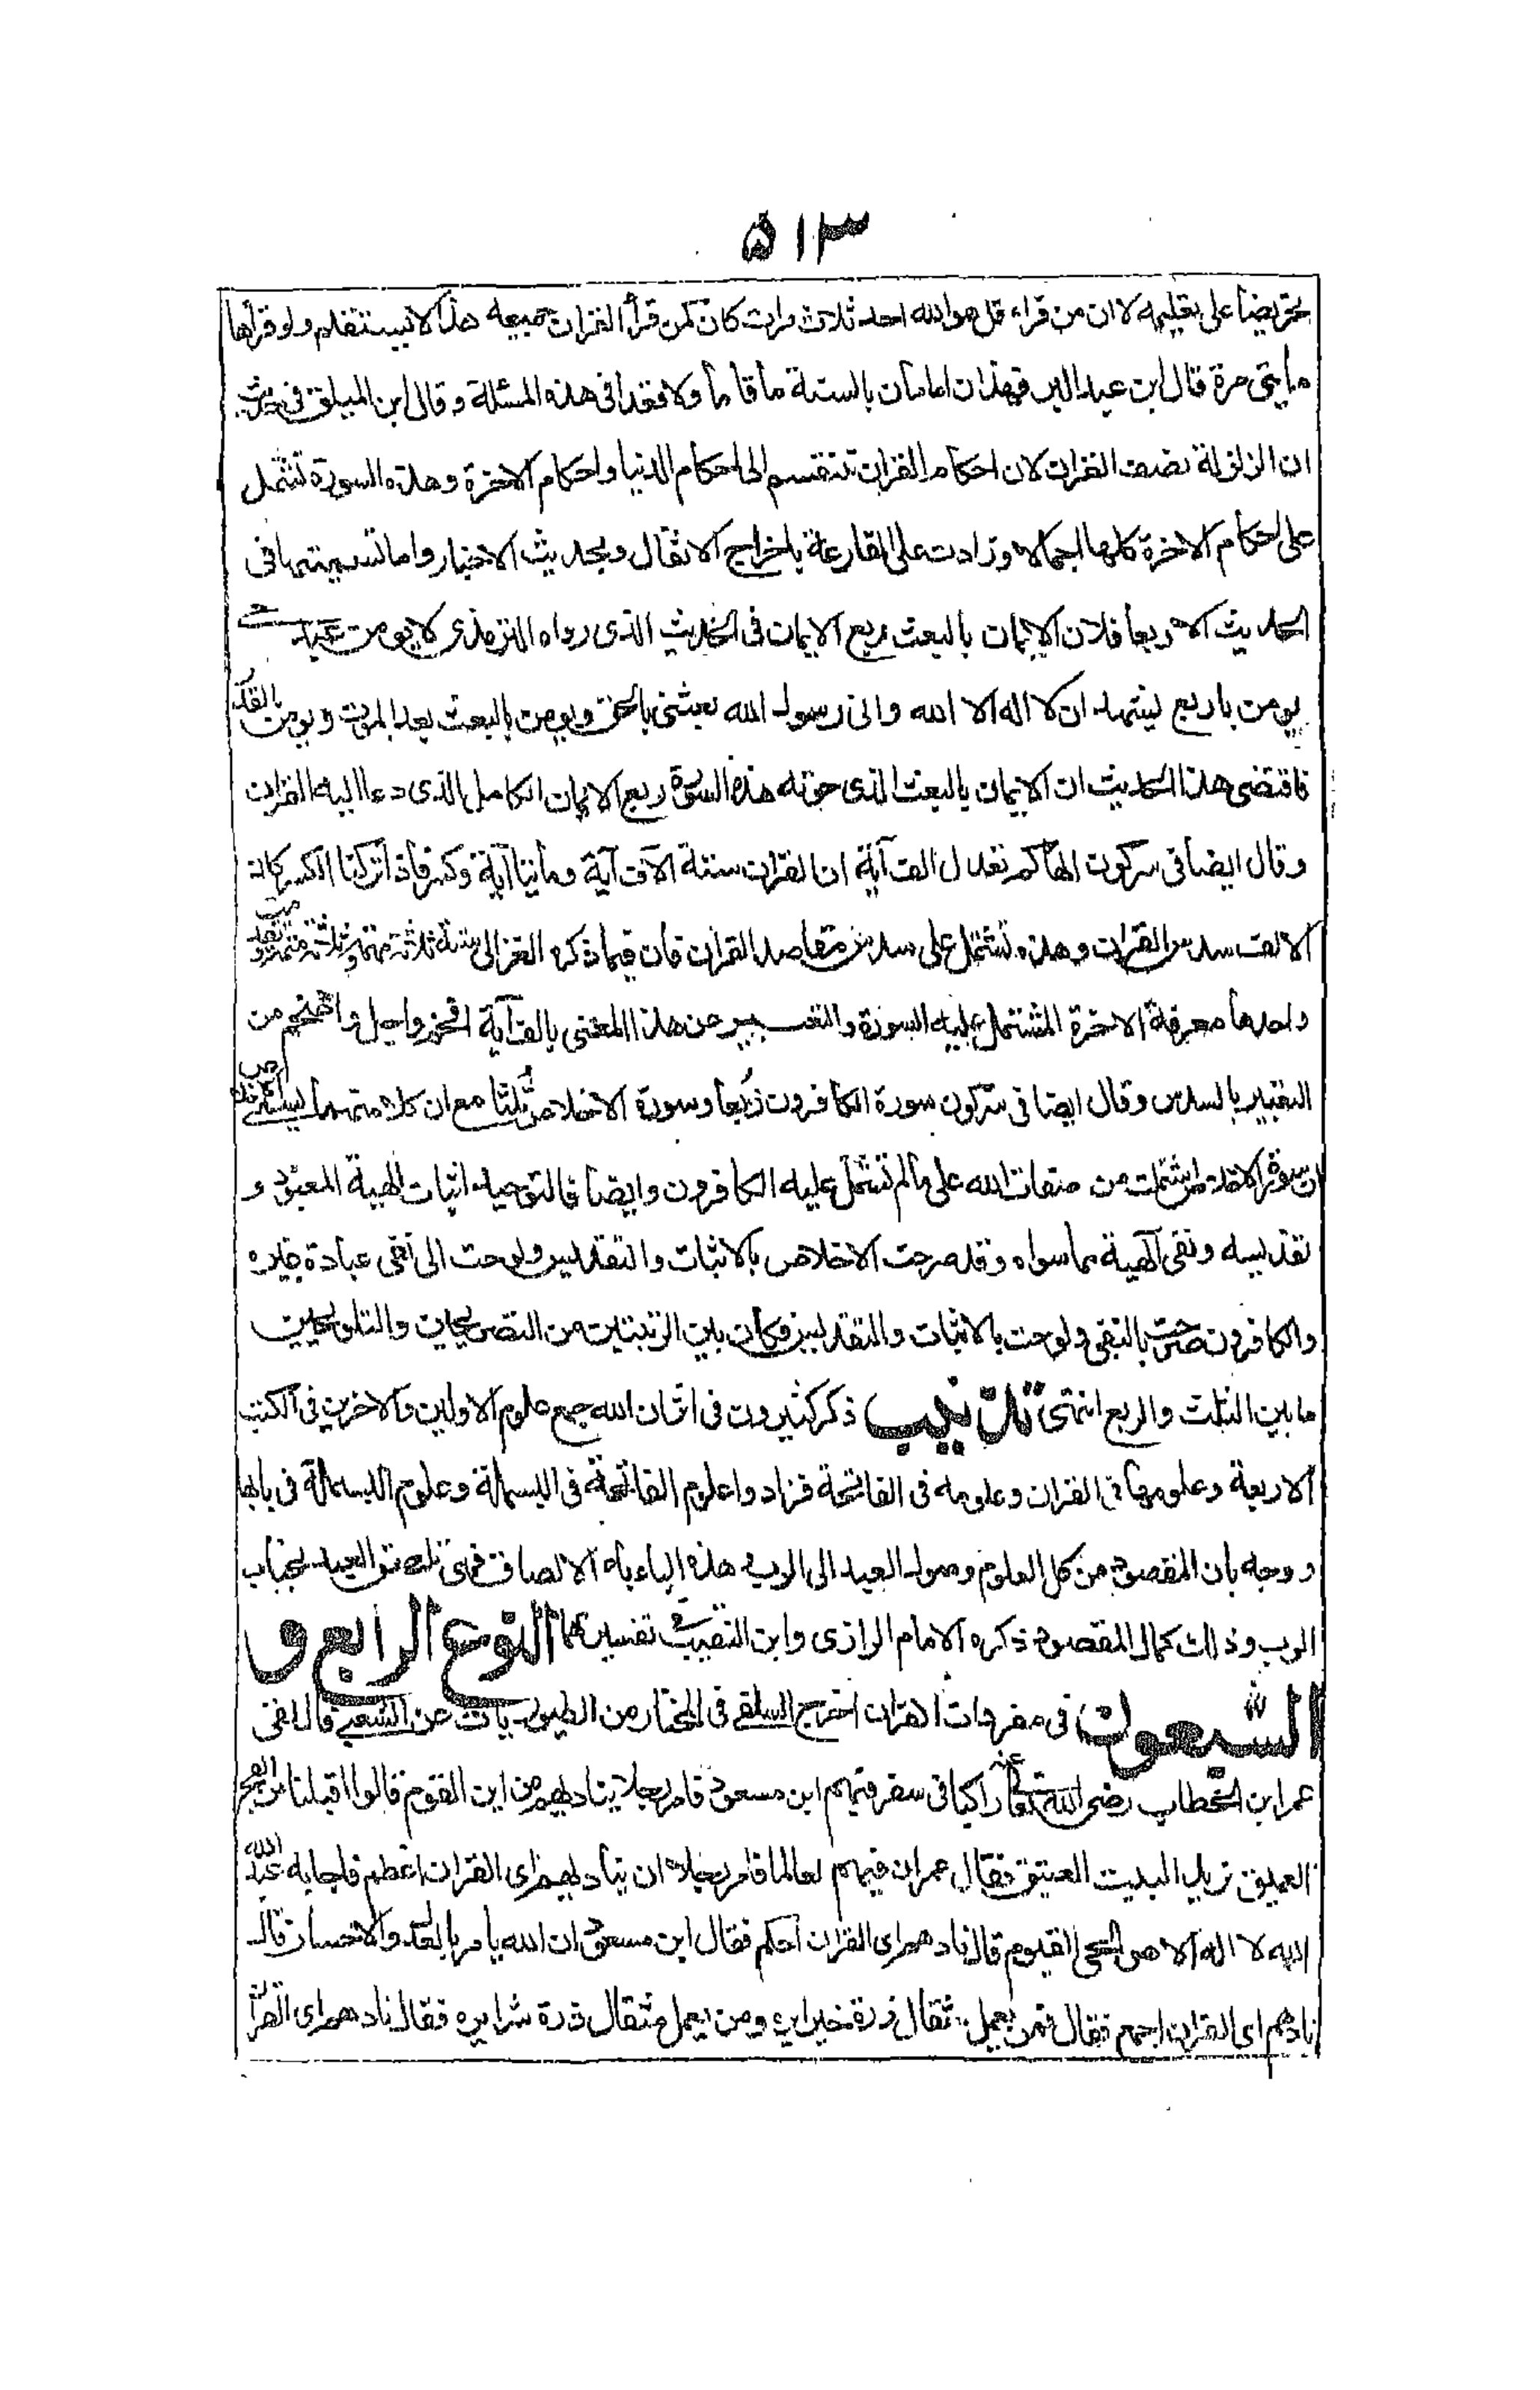 ٥١٣
تحريضا على تعليمه لا ان من قراء قل هو الله احد ثلاث مرات كان كمن قرأ القران جميعه هذا لا يستقيم ولو قرأها
مأيتى مرة قال ابن عبد البر فهذان امامان بالسنة ما قاما ولا قعدا فى هذه المسئلة وقال ابن الميلق فى حديث
ان الزلزلة نصف القران لان احكام القران تنقسم الى احكام الدنيا واحكام الاخرة وهذه السورة تشتمل
على احكام الاخرة كلها اجمالا وزادت على القارعة باخراج الاثقال وبحديث الاخبار واما تسميتها فى
الحديث الاخر ربعا فلان الايمان بالبعث ربع الايمان فى الحديث الذى رواه الترمذى لا يومن عبد حتى
يومن باربع يشهد ان لا اله الا الله وانى رسول الله بعثنى بالحق ويومن بالبعث بعد الموت ويومن بالقدر
فاقتضى هذا الحديث ان الايمان بالبعث الذى قررته هذه السورة ربع الايمان الكامل الذى دعا اليه القران
وقال ايضا فى سر كون الهاكم تعدل الف آية ان القران ستة آلاف آية ومأيتا آية وكسر فاذا تركنا الكسر كان
الالف سدس القران وهذه تشتمل على سدس مقاصد القران فان فيما ذكره الغزالى ستة ثلاثة مهمة وثلاثة متمة وتقدمت
واحدها معرفة الاخرة المشتمل عليه السورة والتعبير عن هذا المعنى بالف آية افخم واجل واضخم من
التعبير بالسدس وقال ايضا فى سر كون سورة الكافرون ربعا وسورة الاخلاص ثلثا مع ان كلا منهما يسمى الاخلاص
ان سورة الاخلاص اشتملت من صفات الله على ما لم تشتمل عليه الكافرون وايضا فالتوحيد اثبات الهية المعبود و
تقديسه ونفى آلهية ما سواه وقد صرحت الاخلاص بالاثبات والتقديس ولوحت الى نفى عبادة غيره
والكافرون صرحت بالنفى ولوحت بالاثبات والتقديس فكان بين الرتبتين من التصريحين والتلويحين
ما بين الثلث والربع انتهى تذنيب ذكر كثيرون فى اثر ان الله جمع علوم الاولين والاخرين فى الكتب
الاربعة وعلومها فى القران وعلومه فى الفاتحة فزادوا علوم الفاتحة فى البسملة وعلوم البسملة فى بائها
ووجه بان المقصود من كل العلوم وصول العبد الى الرب وهذه الباء باء الالصاق فهى تلصق العبد بجناب
الرب وذلك كمال المقصود ذكره الامام الرازى وابن النقيب فى تفسيرهما النوع الرابع و
السبعون فى مفردات القران اخرج السلفى فى المختار من الطيوريات عن الشعبى قال لقى
عمر ابن الخطاب رضى الله تعالى عنه ركبا فى سفر فيهم ابن مسعود فامر رجلا يناديهم من اين القوم قالوا اقبلنا من الفج
العميق نريد البيت العتيق فقال عمر ان فيهم لعالما فامر رجلا ان يناديهم اى القران اعظم فاجابه عبد الله
الله لا اله الا هو الحى القيوم قال نادهم اى القران احكم فقال ابن مسعود ان الله يامر بالعدل والاحسان قال
نادهم اى القران اجمع فقال فمن يعمل مثقال ذرة خيرا يره ومن يعمل مثقال ذرة شرا يره فقال نادهم اى القران